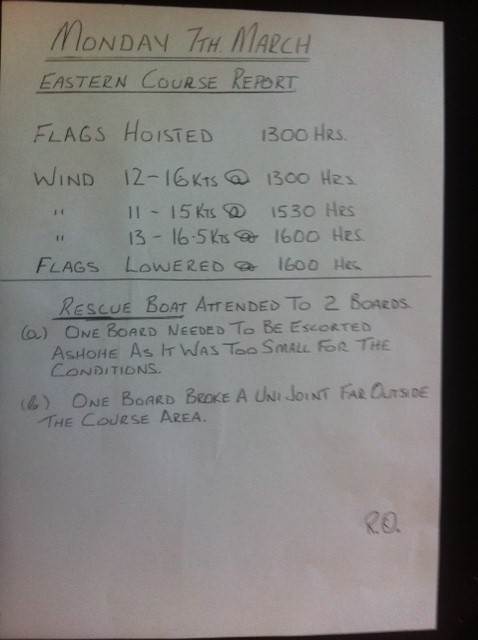 MONDAY 7TH. MARCH
EASTERN COURSE REPORT
FLAGS HOISTED 1300 HRS.
WIND 12-16 KTS @ 1300 HRS
" 11 - 15 KTS @ 1530 HRS
" 13 - 16.5 KTS @ 1600 HRS.
FLAGS LOWERED @ 1600 HRS.
RESCUE BOAT ATTENDED TO 2 BOARDS.
(a) ONE BOARD NEEDED TO BE ESCORTED
ASHOHE AS IT WAS TOO SMALL FOR THE
CONDITIONS.
(b) ONE BOARD BROKE A UNI JOINT FAR OUTSIDE
THE COURSE AREA.
R.O.